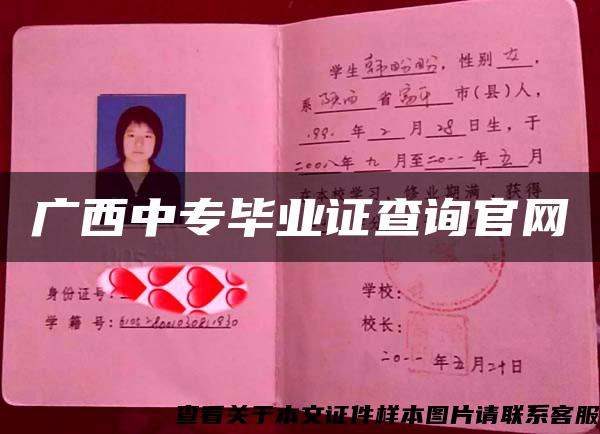 身份证号:
学 籍 号: 6102800103081930
学生韩盼盼,性别女,
系陕西省富平市(县)人,
199 年2月28日生,于
二00八年九月至二0一一年五月
在本校学习,修业期满,获得
广西中专毕业证查询官网
学校:
校长:
二0一一年五月二十日
查看关于本文证件样本图片请联系客服